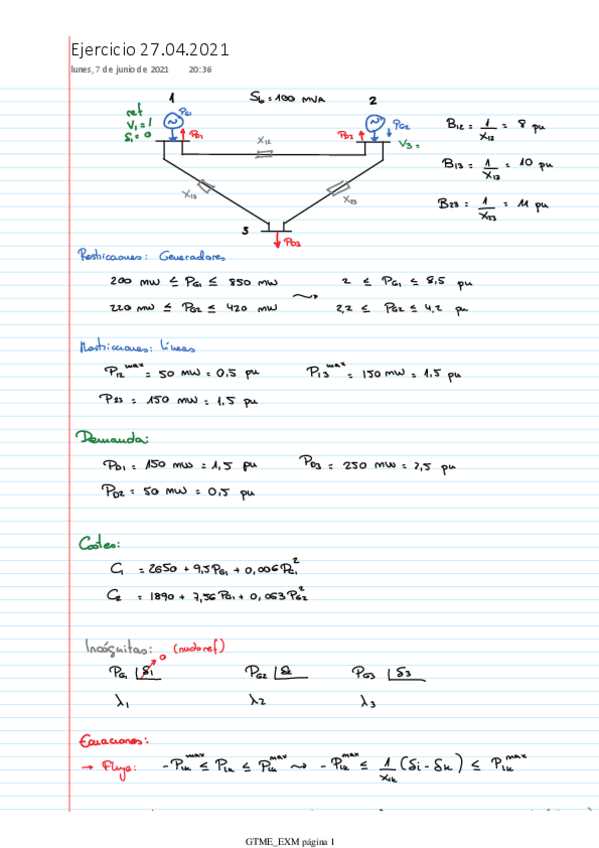 Ejercicio 27.04.2021
lunes, 7 de junio de 2021 20:36
1 S_b = 100 MVA 2
ref
V₁ = 1
δ₁ = 0
PG1
PD1
X12
PD2
PG2
V3 =
X13
X23
3
PD3
B12 = 1/X12 = 8 pu
B13 = 1/X13 = 10 pu
B23 = 1/X23 = 11 pu
Restricciones: Generadores
200 MW ≤ PG1 ≤ 850 MW 2 ≤ PG1 ≤ 8,5 pu
220 MW ≤ PG2 ≤ 420 MW 2,2 ≤ PG2 ≤ 4,2 pu
Restricciones: líneas
P12^max = 50 MW = 0,5 pu P13^max = 150 MW = 1,5 pu
P23 = 150 MW = 1,5 pu
Demanda:
PD1 = 150 MW = 1,5 pu PD3 = 250 MW = 2,5 pu
PD2 = 50 MW = 0,5 pu
Costes:
C1 = 2650 + 9,5 PG1 + 0,006 PG1²
C2 = 1890 + 7,56 PG1 + 0,063 PG2²
Incógnitas: (nudo ref)
PG1 δ1 0 PG2 δ2 PG3 δ3
λ1 λ2 λ3
Ecuaciones:
→ Flujo: -Pik^max ≤ Pik ≤ Pik^max ⇝ -Pik^max ≤ 1/Xik (δi - δk) ≤ Pik^max
GTME_EXM página 1